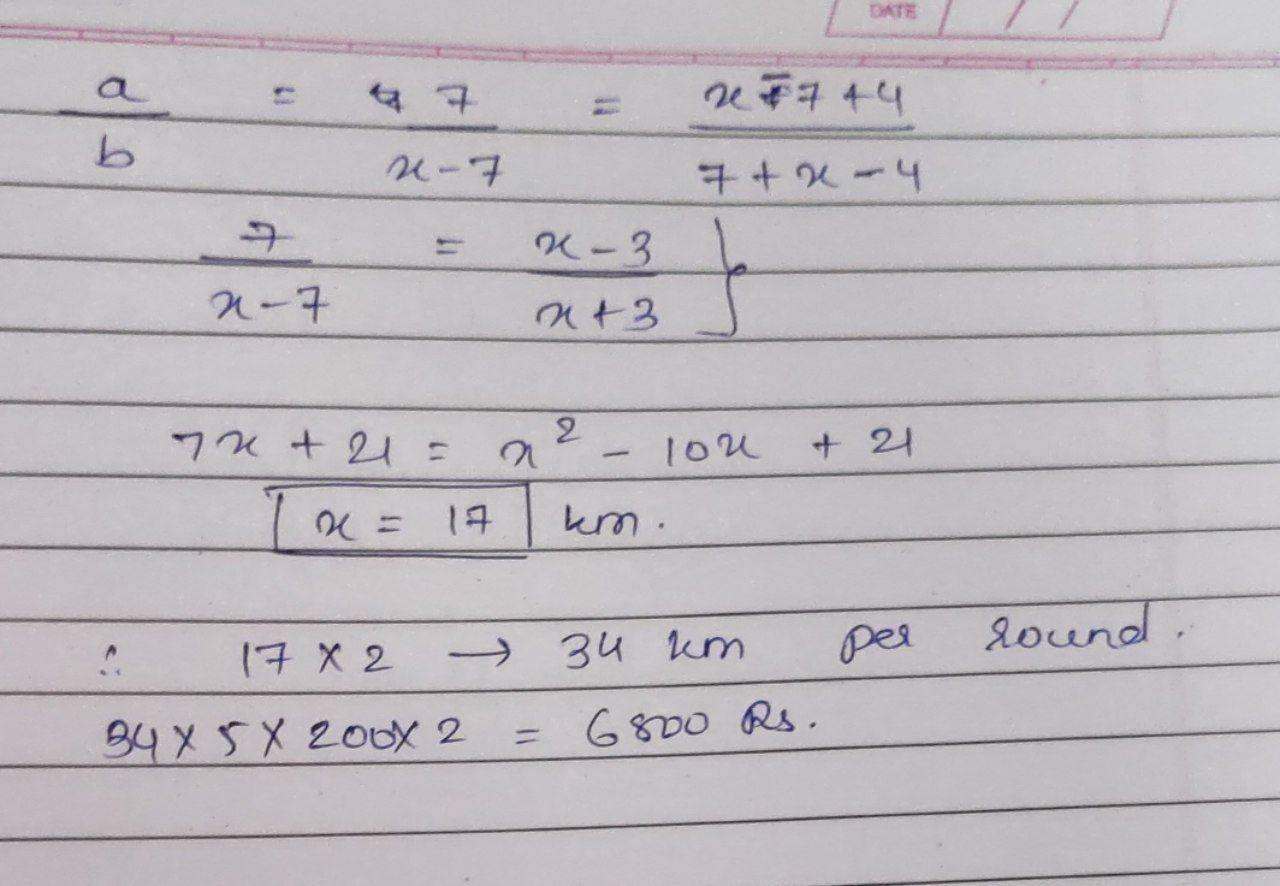 DATE / /
a/b = 7/(x-7) = (x-7+4)/(7+x-4)
7/(x-7) = (x-3)/(x+3) }
7x + 21 = x² - 10x + 21
x = 17 km.
∴ 17 × 2 → 34 km per round.
34 × 5 × 200 × 2 = 6800 Rs.